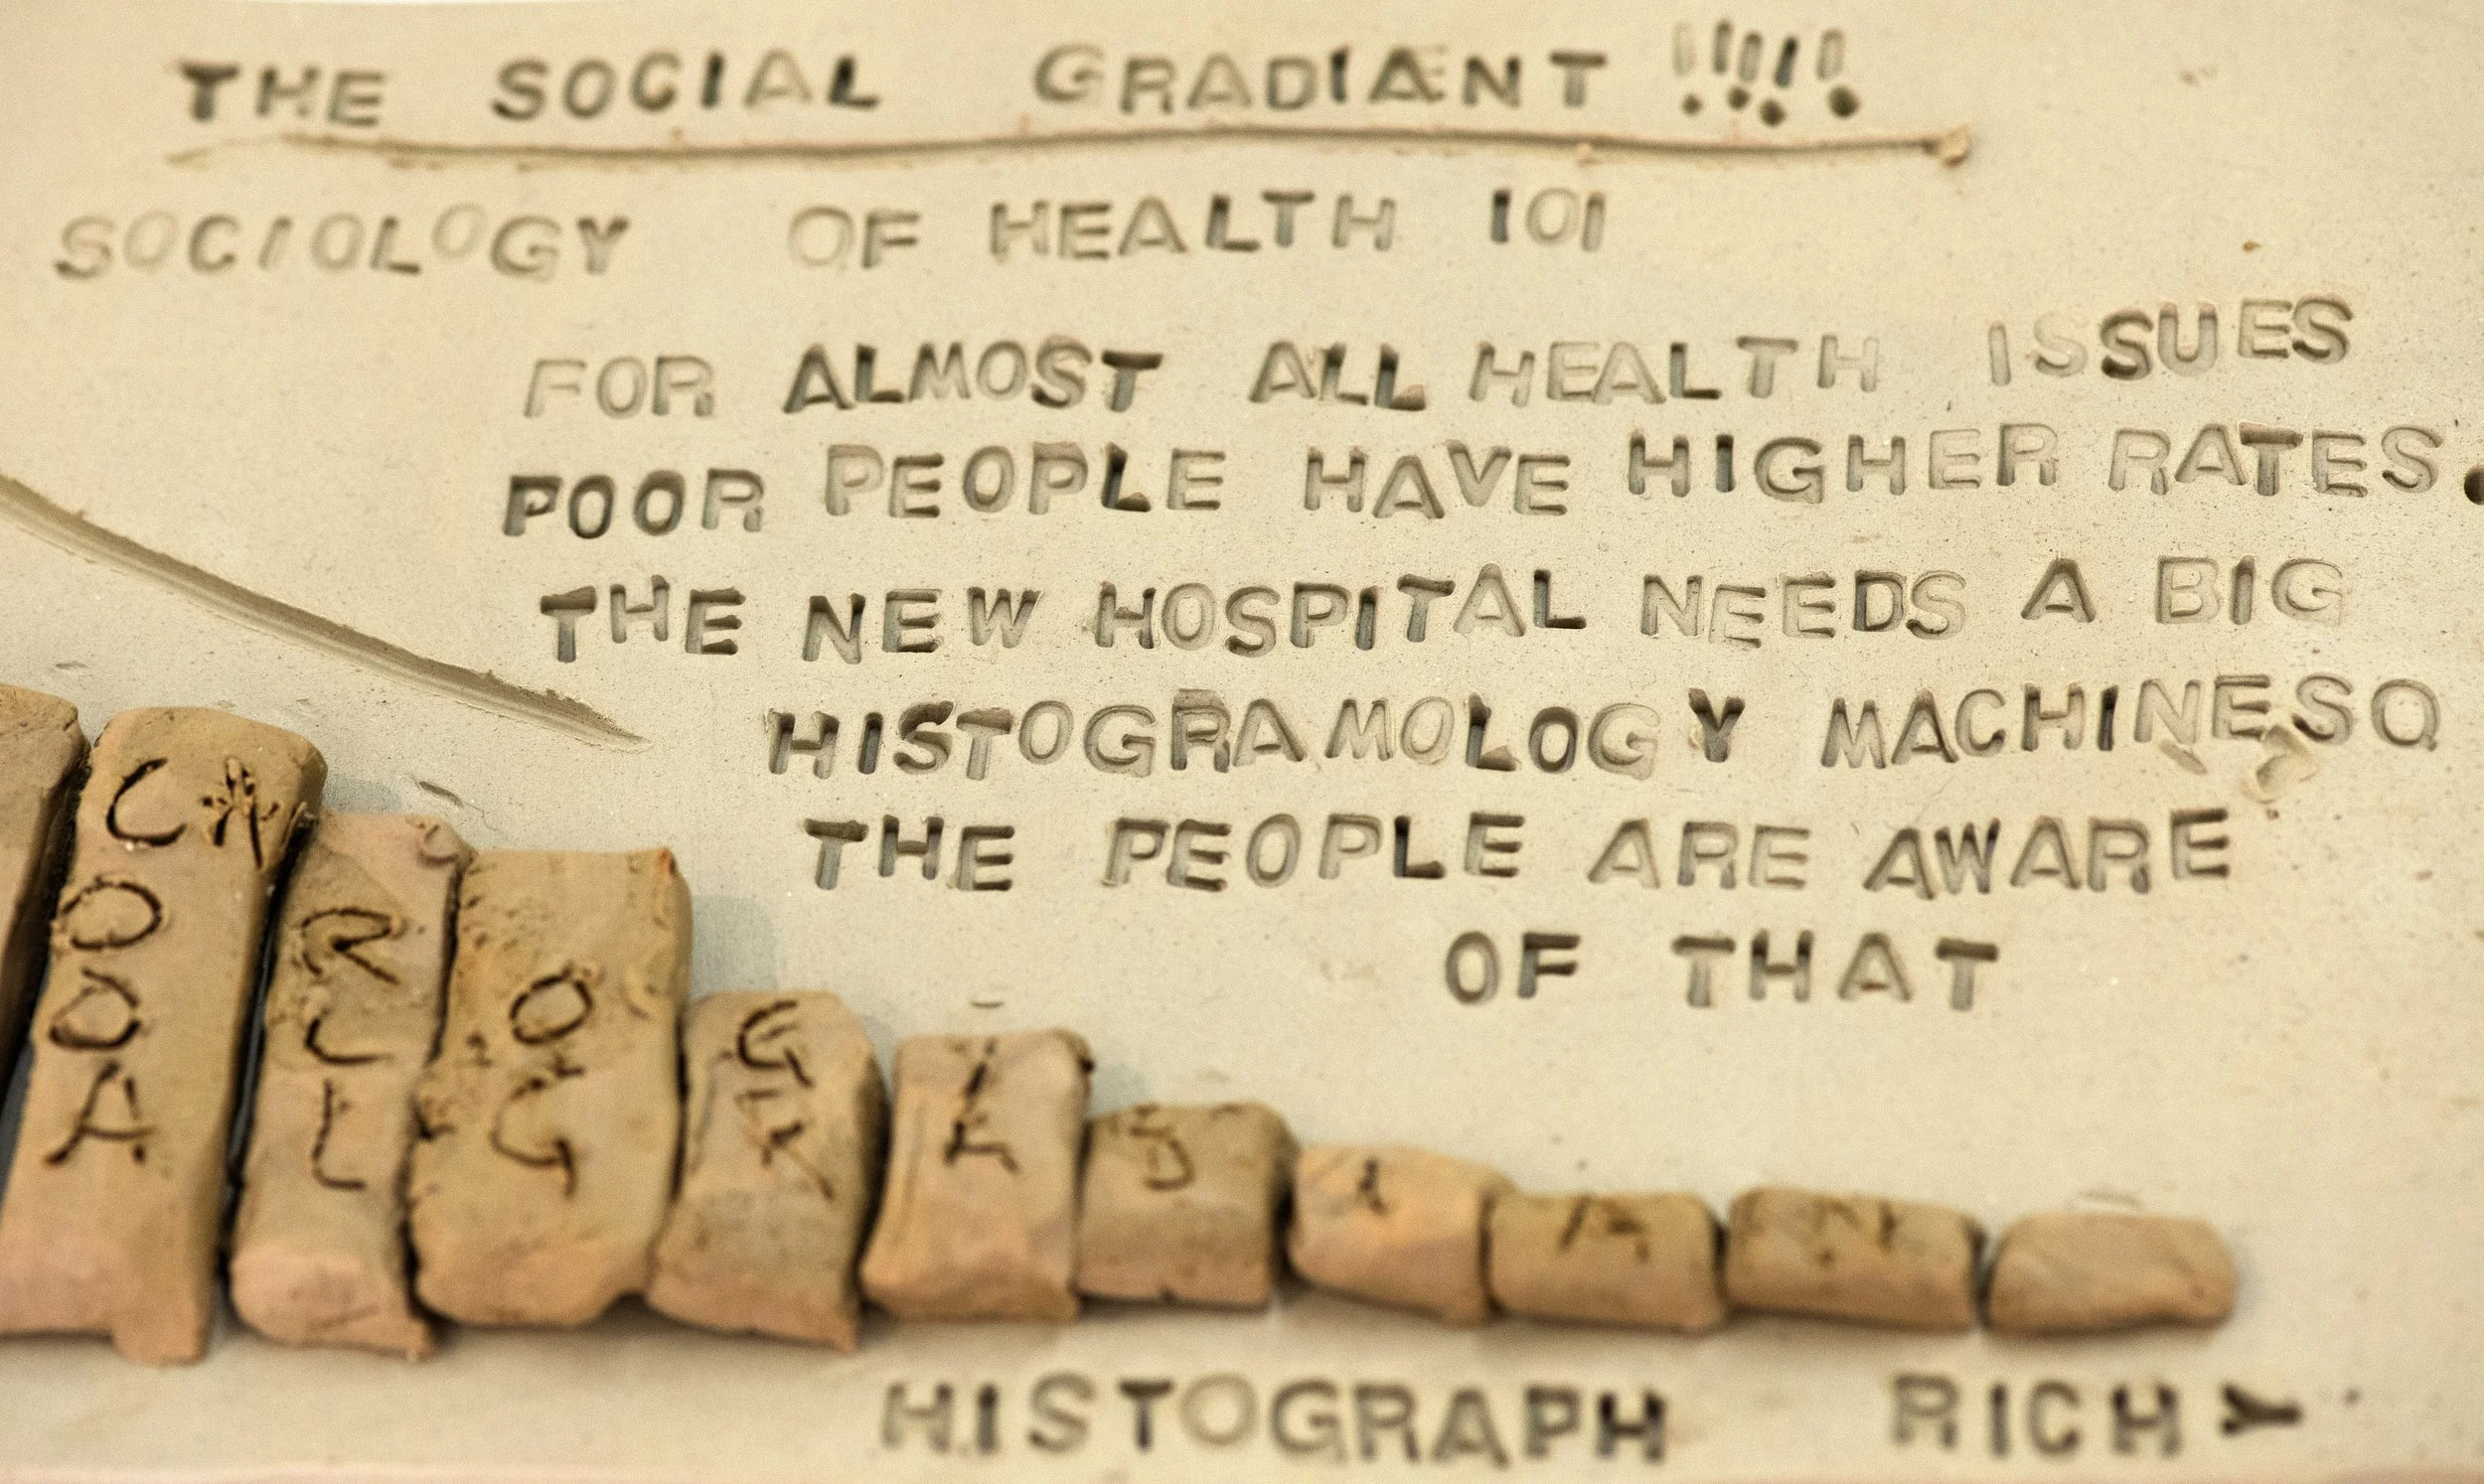 THE SOCIAL GRADIANT !!!!!
SOCIOLOGY OF HEALTH 101
FOR ALMOST ALL HEALTH ISSUES
POOR PEOPLE HAVE HIGHER RATES.
THE NEW HOSPITAL NEEDS A BIG
HISTOGRAMOLOGY MACHINE SO
THE PEOPLE ARE AWARE
OF THAT
HISTOGRAPH RICHY